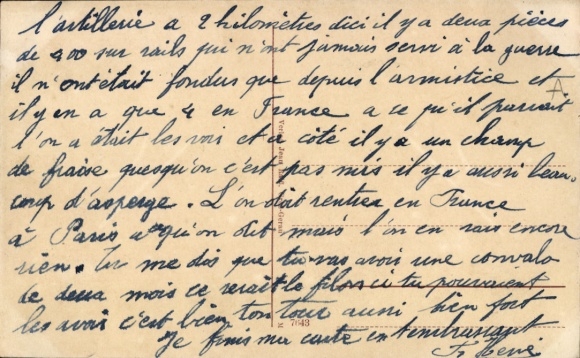 l'artillerie a 2 kilomètres dici il y a deux pièces
de 400 sur rails qui n'ont jamais servi à la guerre
il n'ont était fondus que depuis l'armistice et
il y en a que 4 en France a ce qu'il parrait
l'on a était les voir et a côté il y a un champ
de fraise quesqu'on c'est pas mis il y a aussi beau-
coup d'asperge. L'on doit rentrer en France
à Paris a qu'on dit mais l'on en sais encore
rien. Tu me dis que tu vas avoir une convalo
de deux mois ce serait le filon si tu pouvaient
les avoir c'est bien ton tour aussi bien fort
Je finis ma carte en t'embrassant
7643